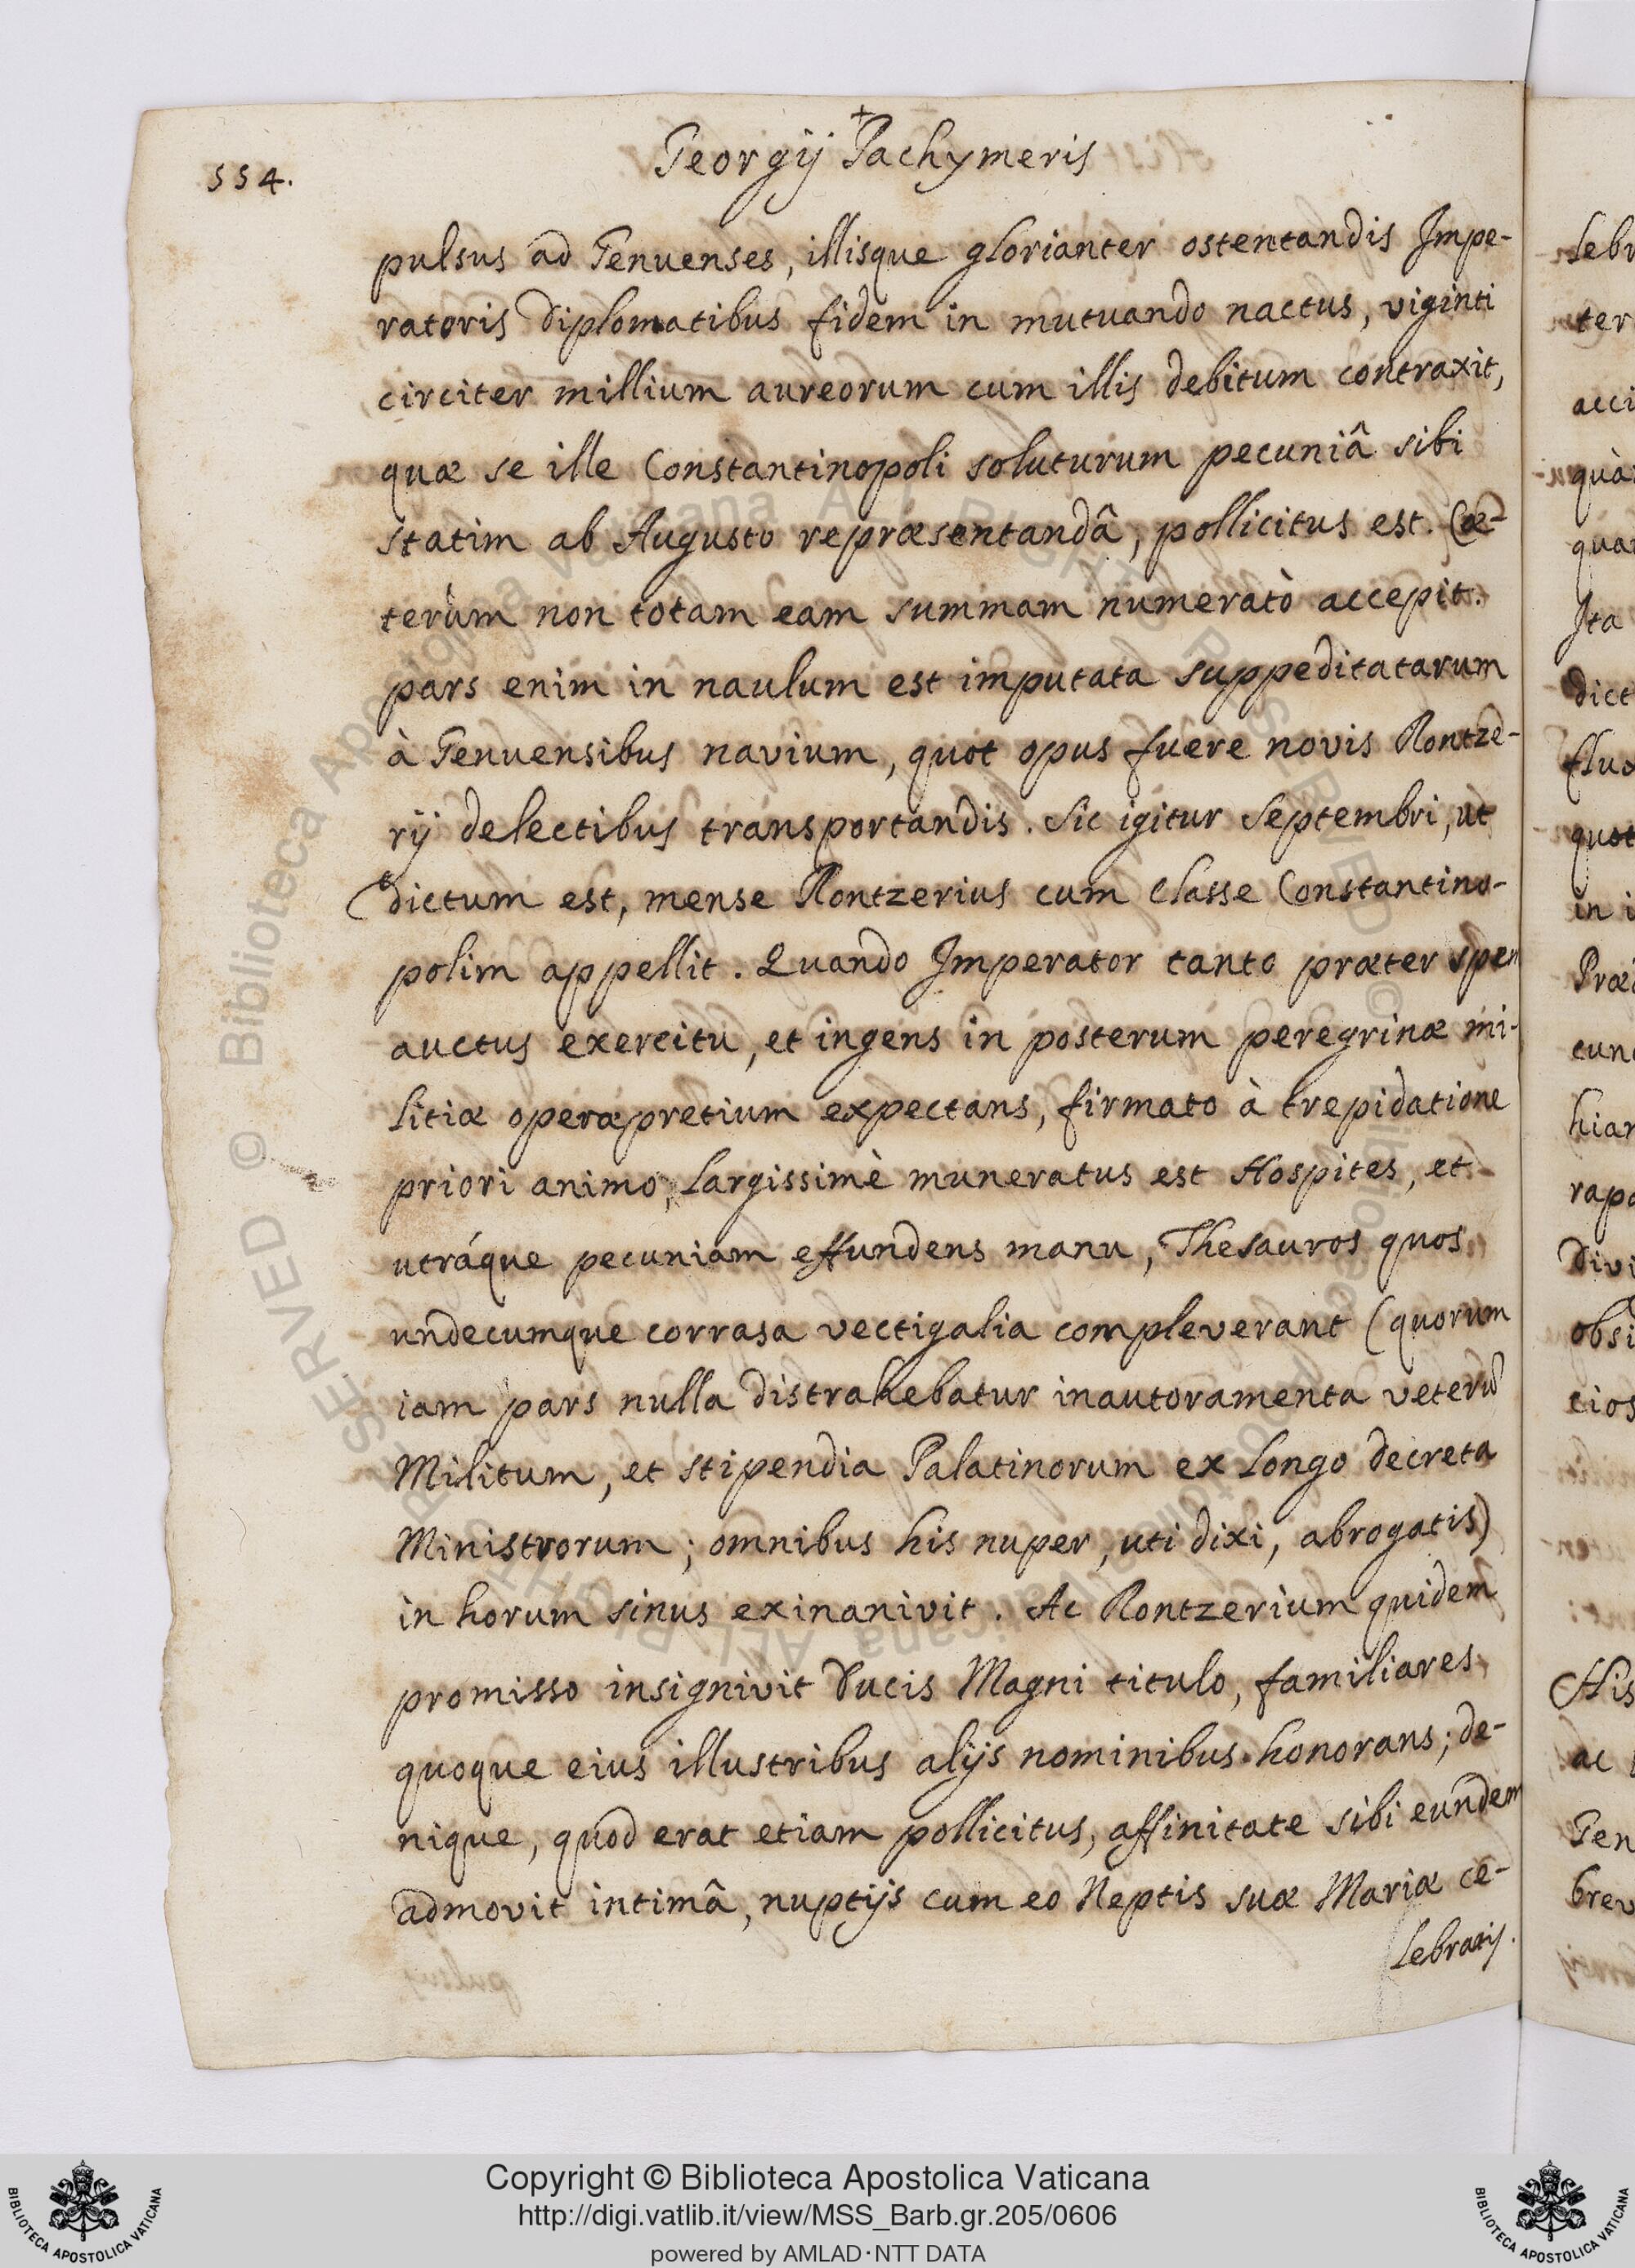 554.
Georgij Pachymeris
pulsus ad Genuenses, illisque glorianter ostentandis Impe-
ratoris diplomatibus fidem in mutuando nactus, viginti
circiter millium aureorum cum illis debitum contraxit,
quæ se ille Constantinopoli soluturum pecuniâ sibi
statim ab Augusto repræsentandâ, pollicitus est. Cæ-
terùm non totam eam summam numeratò accepit.
pars enim in naulum est imputata suppeditatarum
à Genuensibus navium, quot opus fuere novis Rontze-
rij delectibus transportandis. Sic igitur Septembri, ut
dictum est, mense Rontzerius cum Classe Constantino-
polim appellit. Quando Imperator tanto præter spem
auctus exercitu, et ingens in posterum peregrinæ mi-
litiæ operæpretium expectans, firmato à trepidatione
priori animo, largissimè muneratus est Hospites, et
utráque pecuniam effundens manu, Thesauros quos
undecumque corrasa vectigalia compleverant (quorum
iam pars nulla distrahebatur inautoramenta veterũ
Militum, et stipendia Palatinorum ex longo decreta
Ministrorum; omnibus his nuper, uti dixi, abrogatis)
in horum sinus exinanivit. Ac Rontzerium quidem
promisso insignivit Ducis Magni titulo, familiares
quoque eius illustribus alijs nominibus honorans; de-
nique, quod erat etiam pollicitus, affinitate sibi eundem
admovit intimâ, nuptijs cum eo Neptis suæ Mariæ ce-
lebratis.
Copyright © Biblioteca Apostolica Vaticana
http://digi.vatlib.it/view/MSS_Barb.gr.205/0606
powered by AMLAD·NTT DATA
BIBLIOTECA APOSTOLICA VATICANA
BIBLIOTECA APOSTOLICA VATICANA